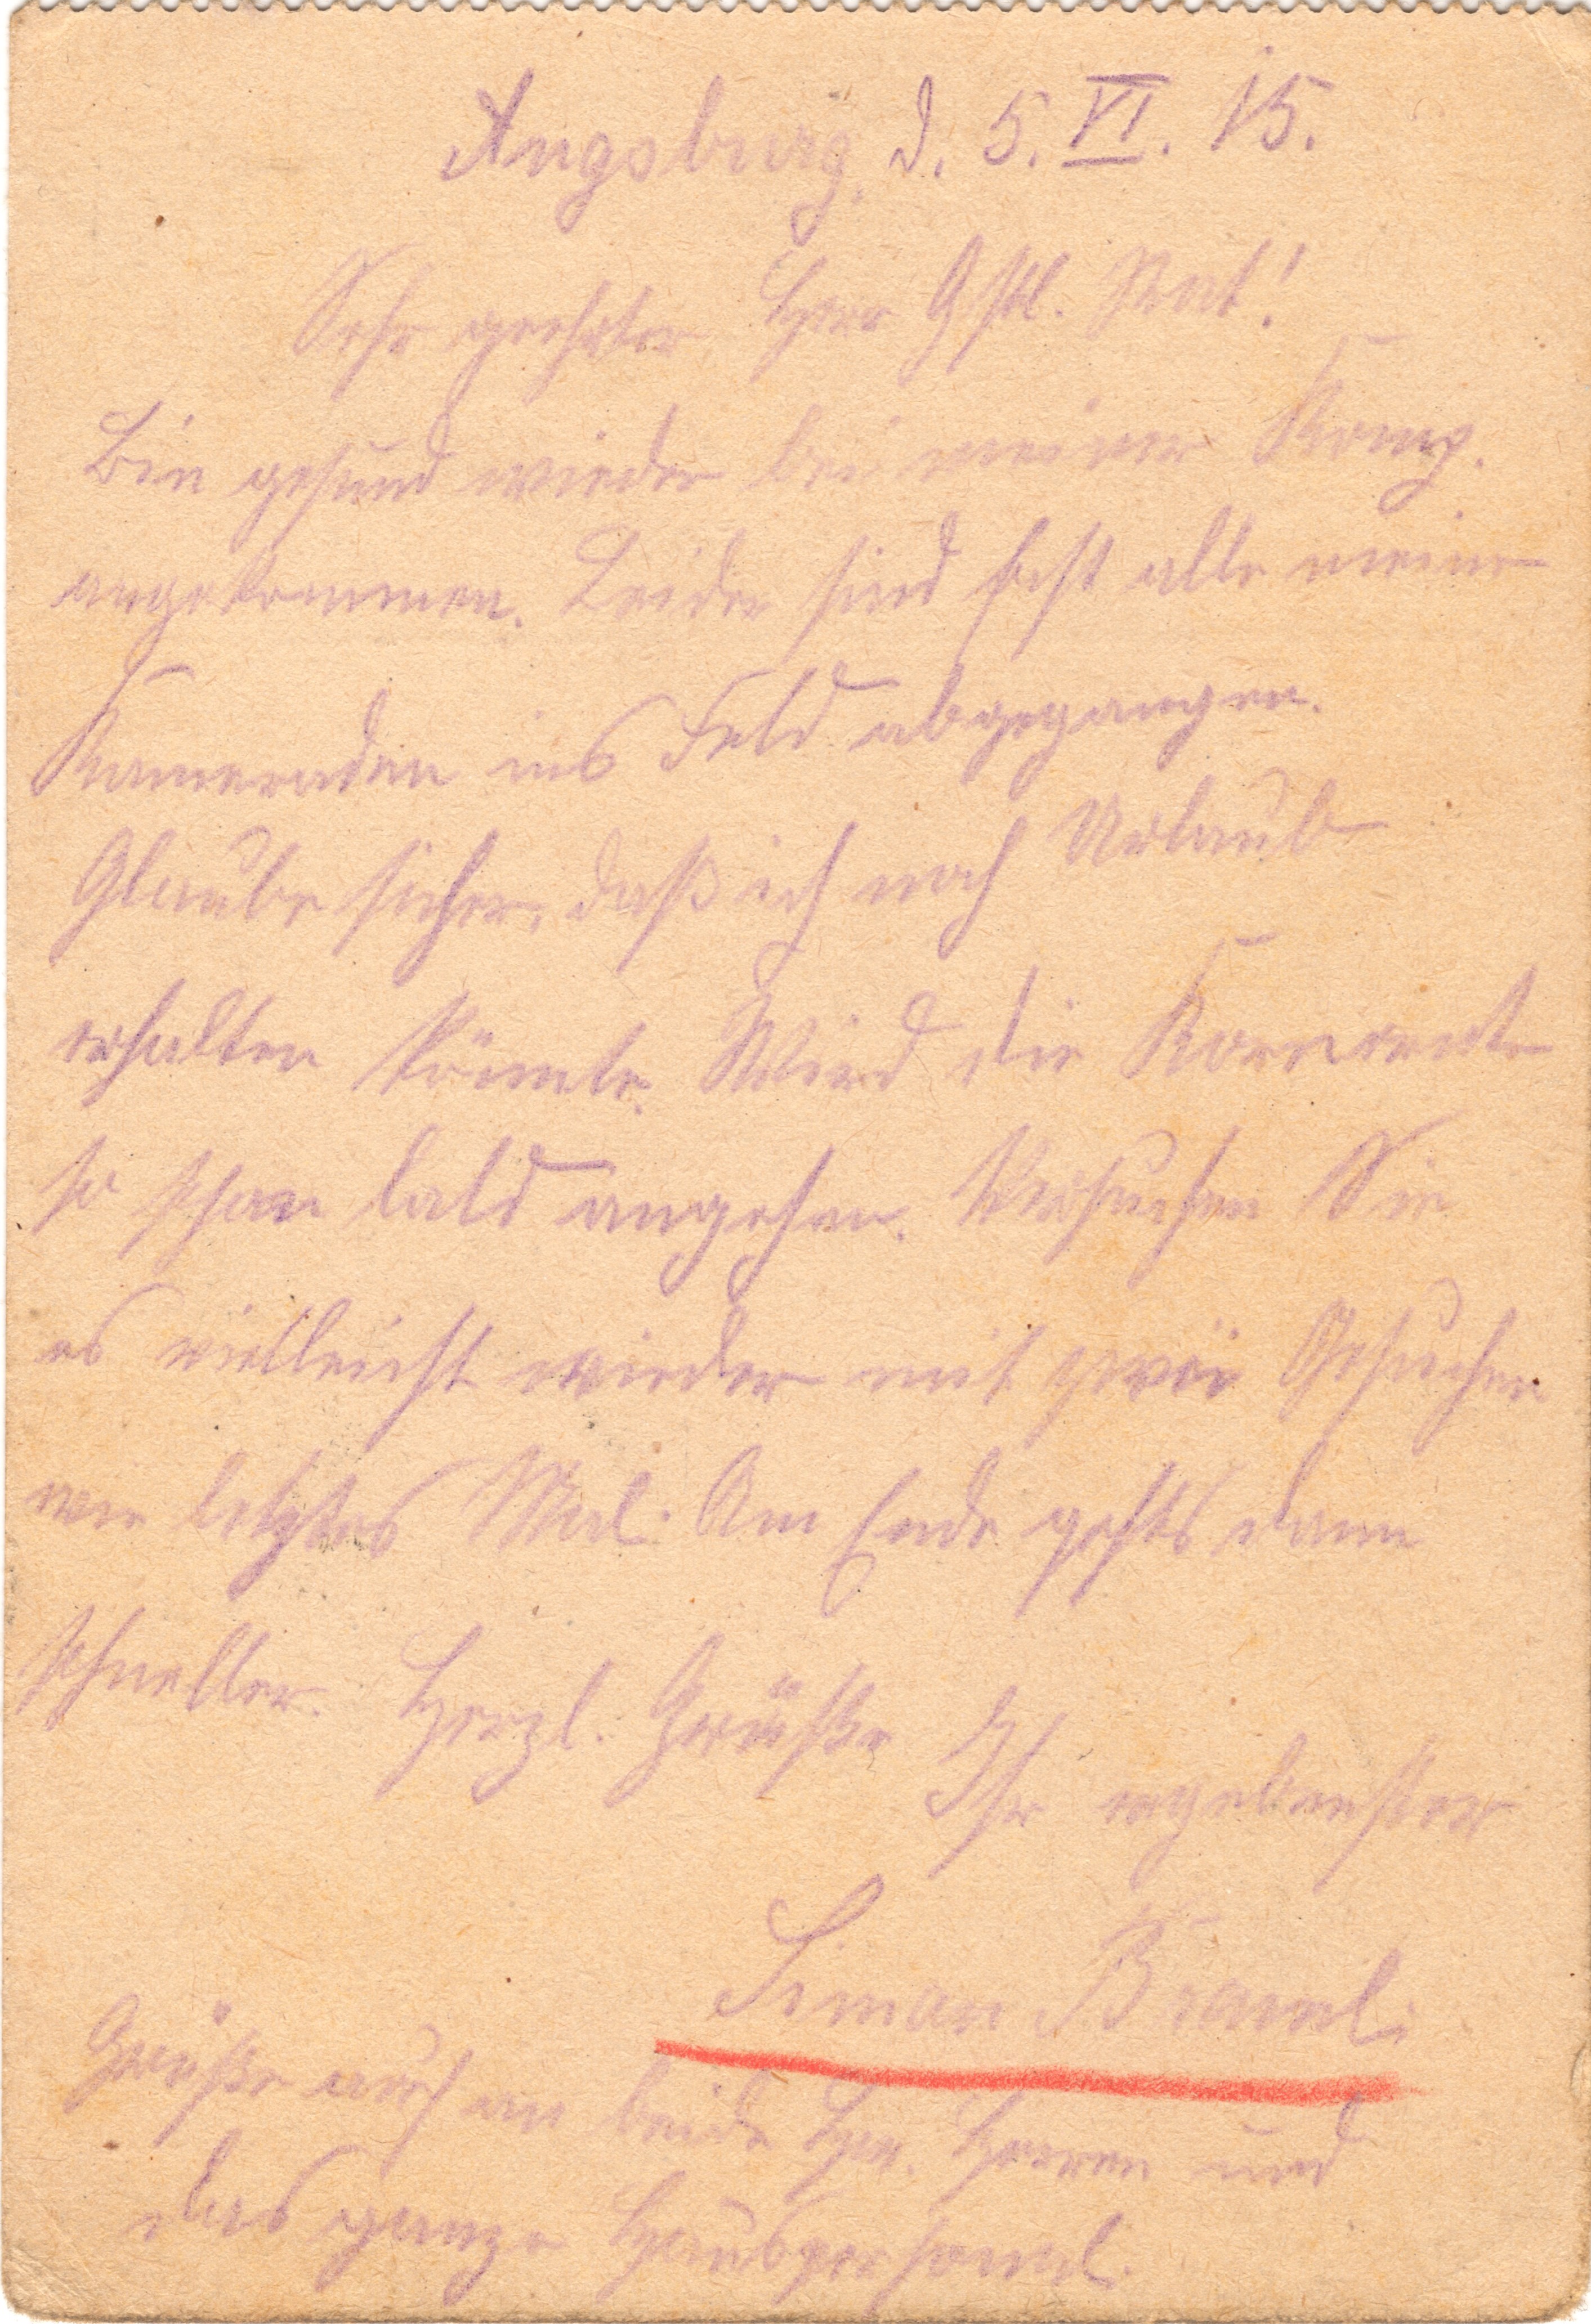 Augsburg, d. 5. VI. 15.
Sehr geehrter Herr Gstl. Rat!
Bin gesund wieder bei meiner Komp.
angekommen. Leider sind fast alle meine
Kameraden ins Feld abgegangen.
Glaube sicher, daß ich noch Urlaub
erhalten könnte. Wird die Kornernte
so schon bald angehen. Versuchen Sie
es vielleicht wieder mit zwei Gesuchen
wie letztes Mal. Am Ende gehts dann
schneller. Herzl. Grüße
Ihr ergebenster
Simon
Grüße auch an beide Herren und
das ganze Hauspersonal.